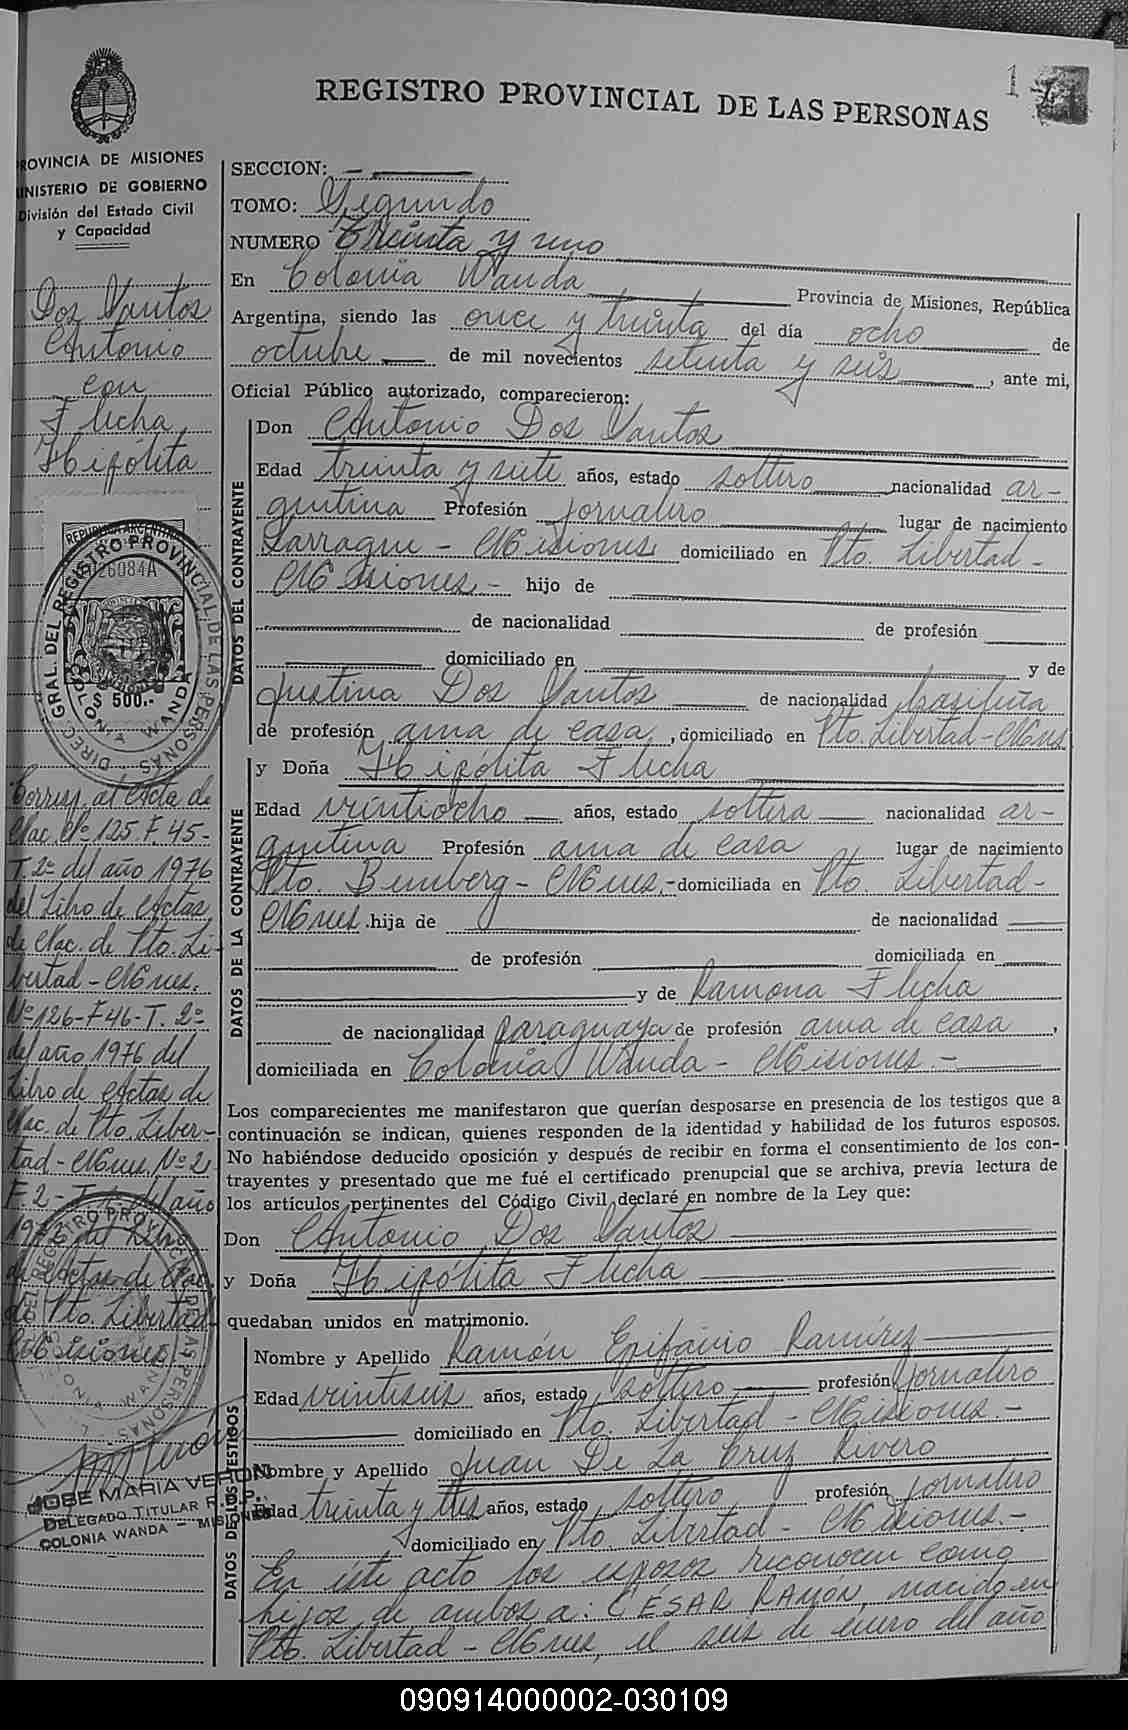 REGISTRO PROVINCIAL DE LAS PERSONAS
1
PROVINCIA DE MISIONES
MINISTERIO DE GOBIERNO
División del Estado Civil
y Capacidad
Dos Santos
Antonio
con
Flecha
Hipólita
REPUBLICA ARGENTINA
026084A
$ 500.-
DIREC. GRAL. DEL REGISTRO PROVINCIAL DE LAS PERSONAS
COLONIA WANDA
Corresp. al Acta de
Nac. Nº 125. F. 45-
T. 2º del año 1976
del Libro de Actas
de Nac. de Pto. Li-
bertad - Mnes.
Nº 126-F46-T. 2º
del año 1976 del
Libro de Actas de
Nac. de Pto. Liber-
tad - Mnes. Nº 2
F. 2 - T. del año
del Libro
de Actas de Nac.
de Pto. Libertad
Misiones
JOSE MARIA VERON
DELEGADO TITULAR R. P. P.
COLONIA WANDA - MISIONES
SECCION: -
TOMO: Segundo
NUMERO Treinta y uno
En Colonia Wanda Provincia de Misiones, República
Argentina, siendo las once y treinta del día ocho de
octubre de mil novecientos setenta y seis, ante mi,
Oficial Público autorizado, comparecieron:
DATOS DEL CONTRAYENTE
Don Antonio Dos Santos
Edad treinta y siete años, estado soltero nacionalidad ar-
gentina Profesión jornalero lugar de nacimiento
Larraque - Misiones domiciliado en Pto. Libertad -
Misiones - hijo de
de nacionalidad de profesión
domiciliado en y de
Justina Dos Santos de nacionalidad brasileña
de profesión ama de casa, domiciliado en Pto. Libertad - Mnes
DATOS DE LA CONTRAYENTE
y Doña Hipólita Flecha
Edad veintiocho años, estado soltera nacionalidad ar-
gentina Profesión ama de casa lugar de nacimiento
Pto. Bemberg - Mnes. - domiciliada en Pto. Libertad -
Mnes. hija de de nacionalidad
de profesión domiciliada en
y de Ramona Flecha
de nacionalidad paraguaya de profesión ama de casa,
domiciliada en Colonia Wanda - Misiones. -
Los comparecientes me manifestaron que querían desposarse en presencia de los testigos que a
continuación se indican, quienes responden de la identidad y habilidad de los futuros esposos.
No habiéndose deducido oposición y después de recibir en forma el consentimiento de los con-
trayentes y presentado que me fué el certificado prenupcial que se archiva, previa lectura de
los artículos pertinentes del Código Civil, declaré en nombre de la Ley que:
Don Antonio Dos Santos
y Doña Hipólita Flecha
quedaban unidos en matrimonio.
DATOS DE LOS TESTIGOS
Nombre y Apellido Ramón Epifanio Ramírez
Edad veintiseis años, estado soltero profesión jornalero
domiciliado en Pto. Libertad - Misiones. -
Nombre y Apellido Juan De La Cruz Rivero
Edad treinta y tres años, estado soltero profesión jornalero
domiciliado en Pto. Libertad - Misiones. -
En éste acto los esposos reconocen como
hijos de ambos a: CÉSAR RAMÓN, nacido en
Pto. Libertad - Mnes, el seis de enero del año
090914000002-030109